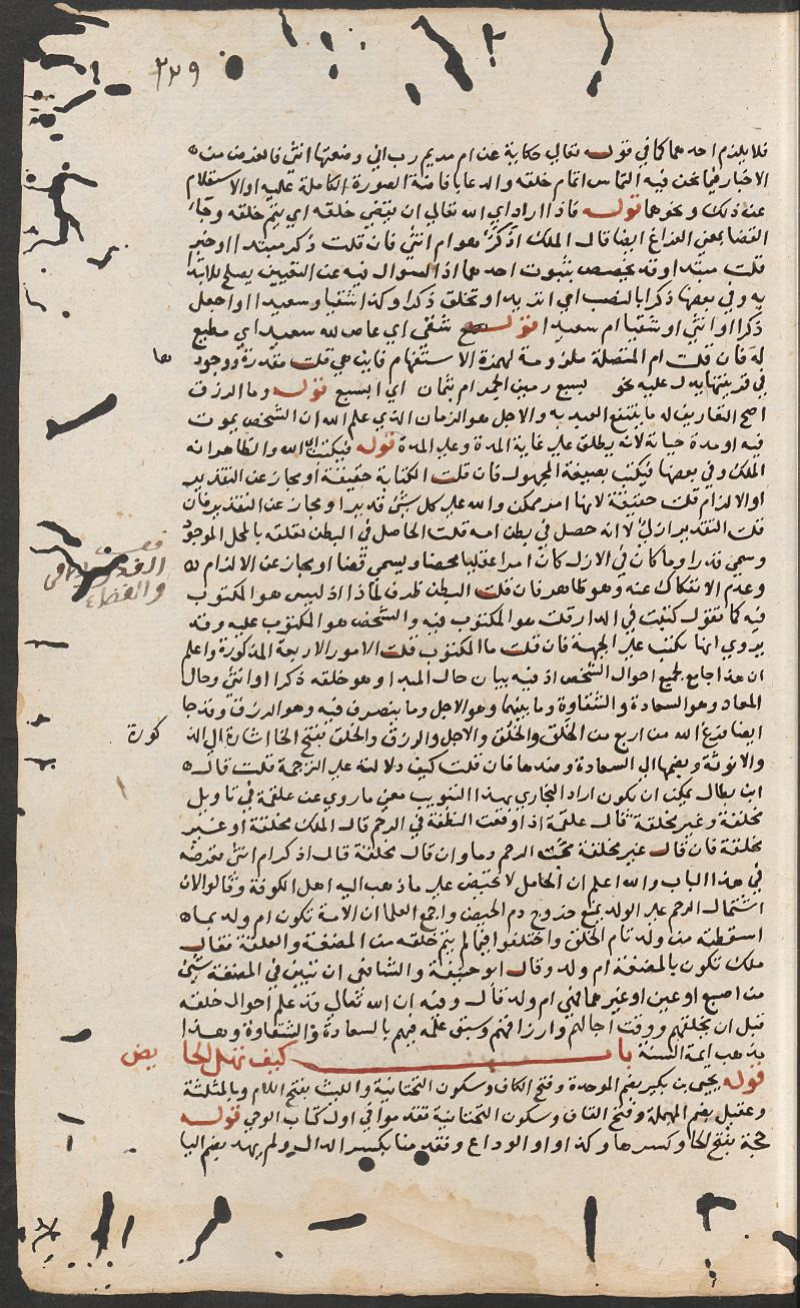 ٣٢٩
فلا يلزم احدهما كما في قوله تعالى حكاية عن ام مريم رب اني وضعتها انثى فالغرض من
الاخبار فيما نحن فيه التماس اتمام خلقه والدعا بافاضة الصورة الكاملة عليه او الاستعلام
عن ذلك ونحوهما قوله فاذا اراد اي الله تعالى ان يقضي خلقه اي يتم خلقه وجاء
القضا بمعني الفراغ ايضا قال الملك اذكر هو ام انثى فان قلت ذكر مبتدا او خبر
قلت مبتدا وقد يخصص بثبوت احدهما اذ السوال فيه عن التعيين يصلح للابتدا
به وفي بعضها ذكرا بالنصب اي اتريد او تخلق ذكرا وكذا شقيا وسعيدا او اجعل
ذكرا او انثى او شقيا ام سعيدا قوله شقي اي عاص لله سعيد اي مطيع
له فان قلت ام المتصلة ملزومة لهمزة الاستفهام فاين هي قلت مقدرة ووجود
ها
في قرينتها يدل عليه نحو بسبع رمين الجمر ام بثمان اي ابسبع قوله وما الرزق
اصح التعاريف له ما ينتفع العبد به والاجل هو الزمان الذي علم الله ان الشخص يموت
فيه او مدة حياته لانه يطلق على غاية المدة وعلى المدة قوله فيكتب الله والظاهر انه
الملك وفي بعضها فيكتب بصيغة المجهول فان قلت الكتابة حقيقة او مجاز عن التقدير
او الالزام قلت حقيقة لانها امر ممكن والله على كل شي قدير او مجاز عن التقدير فان
قلت التقدير ازلي لا انه حصل في بطن امه قلت الحاصل في البطن تعلقه بالمحل الموجود
وسمي قدرا وما كان في الازل كان امرا عقليا محضا ويسمي قضا او مجاز عن الالزام
وعدم الانفكاك عنه وهو ظاهر فان قلت البطن ظرف لماذا اذ ليس هو المكتوب
فيه كما تقول كتبت في الدار قلت هو المكتوب فيه والشخص هو المكتوب عليه وقد
يروي انها تكتب على الجبهة فان قلت ما المكتوب قلت الامور الاربعة المذكورة واعلم
ان هذا جامع لجميع احوال الشخص اذ فيه بيان حال المبدا وهو خلقه ذكرا او انثى وحال
المعاد وهو السعادة والشقاوة وما بينهما وهو الاجل وما يتصرف فيه وهو الرزق وقد جا
ايضا فرغ الله من اربع من الخلق والخلق والاجل والرزق والخلق بفتح الخا اشارة الى الذ
كورة
والانوثة وبضمها الى السعادة وضدها فان قلت كيف دلالته على الترجمة قلت قال
ابن بطال يمكن ان يكون اراد البخاري بهذا التبويب معني ما روي عن علقمة في تاويل
مخلقة وغير مخلقة قال علقمة اذا وقعت النطفة في الرحم قال الملك مخلقة او غير
مخلقة فان قال غير مخلقة مجت الرحم دما وان قال مخلقة قال اذكر ام انثى فغرضه
في هذا الباب والله اعلم ان الحامل لا تحيض على ما ذهب اليه اهل الكوفة وقالوا لان
اشتمال الرحم على الولد يمنع خروج دم الحيض واجمع العلما ان الامة تكون ام ولد بما
اسقطته من ولد تام الخلق واختلفوا فيما لم يتم خلقه من المضغة والعلقة فقال
ملك تكون بالمضغة ام ولد وقال ابو حنيفة والشافعي ان تبين في المضغة شي
من اصبع او عين او غيرهما فهي ام ولد قال وفيه ان الله تعالى قد علم احوال خلقه
قبل ان يخلقهم ووقت اجالهم وارزاقهم وسبق علمه فيهم بالسعادة والشقاوة وهذا
مذهب ايمة السنة باب كيف تهل الحا يض
قوله يحيى بن بكير بضم الموحدة وفتح الكاف وسكون التحتانية والليث بفتح اللام وبالمثلثة
وعقيل بضم المهملة وفتح القاف وسكون التحتانية تقدموا في اول كتاب الوحي قوله
حجة بفتح الحا وكسرها وكذا واو الوداع وتقدمنا بكسر الدال ولم يهد بضم اليا